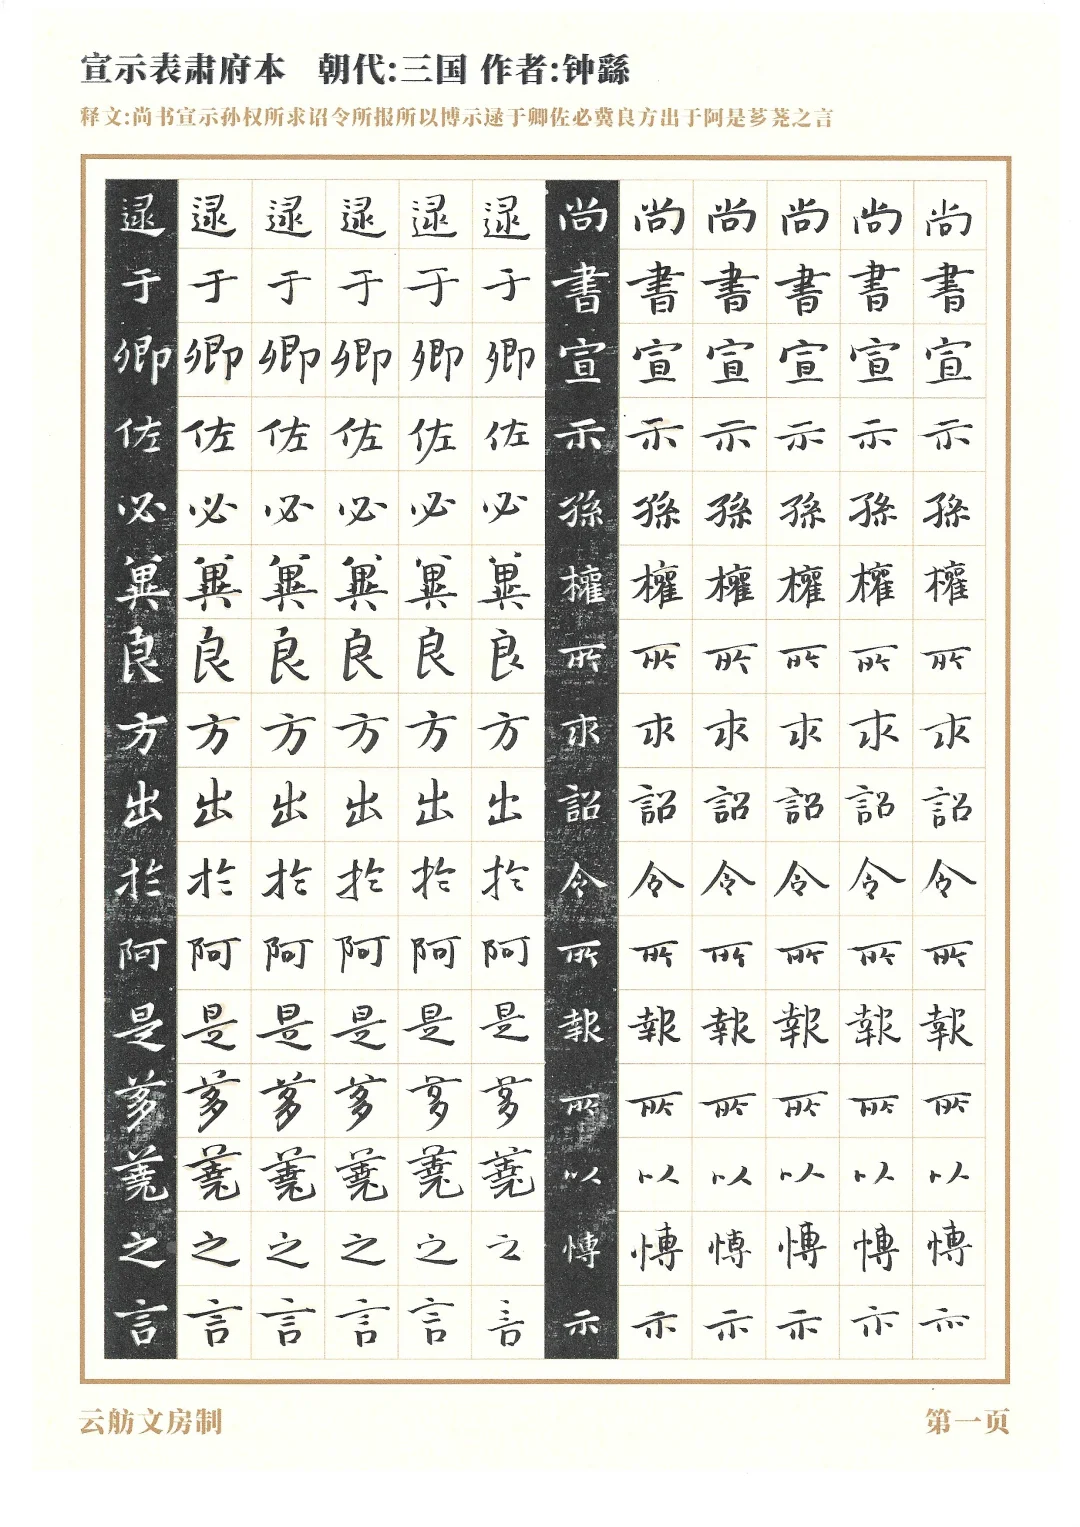 宣示表肃府本 朝代:三国 作者:钟繇
释文:尚书宣示孙权所求诏令所报所以博示逯于卿佐必冀良方出于阿是芗荛之言
尚書宣示孫權所求詔令所報所以愽示
尚書宣示孫權所求詔令所報所以愽示
尚書宣示孫權所求詔令所報所以愽示
尚書宣示孫權所求詔令所報所以愽示
尚書宣示孫權所求詔令所報所以愽示
尚書宣示孫權所求詔令所報所以愽示
逯于卿佐必冀良方出於阿是芻蕘之言
逯于卿佐必冀良方出於阿是芻蕘之言
逯于卿佐必冀良方出於阿是芻蕘之言
逯于卿佐必冀良方出於阿是芻蕘之言
逯于卿佐必冀良方出於阿是芻蕘之言
逯于卿佐必冀良方出於阿是芻蕘之言
云舫文房制
第一页